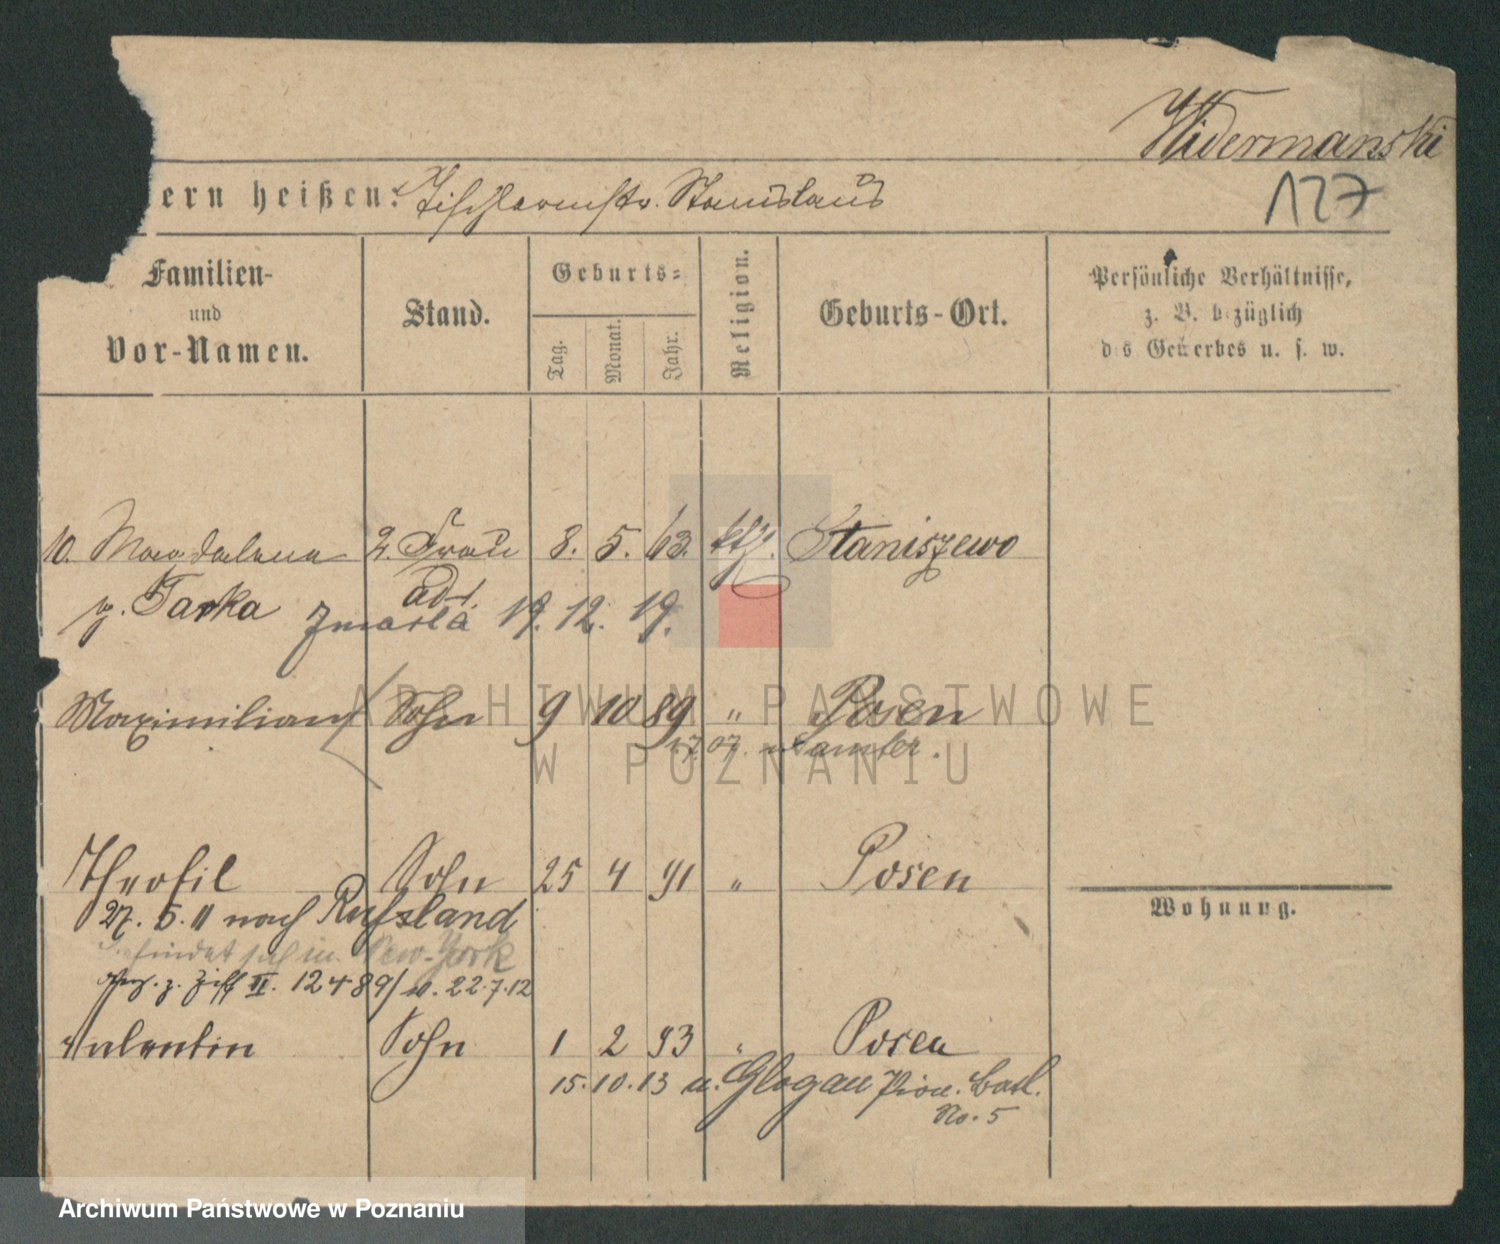 Widermanski
127
ern heißen: Tischlermstr. Stanislaus
Familien-
und
Vor-Namen.
Stand.
Geburts-
Tag.
Monat.
Jahr.
Religion.
Geburts-Ort.
Persönliche Verhältnisse,
z. B. bezüglich
des Gewerbes u. s. w.
10. Magdalena 2. Frau 8. 5. 63. kth. Staniszewo
g. Tarka adt.
Zmarła 19. 12. 19.
Maximilian Sohn 9 10 89 " Posen
7. 07. n. Samter.
Theofil Sohn 25 4 91 " Posen
27. 5. 11 nach Russland
befindet sich in New-York
z. Ziff II. 12489/ v. 22.7.12
Wohnung.
Valentin Sohn 1 2 93 " Posen
15. 10. 13 n. Glogau Pion. Batl.
No. 5
ARCHIWUM PAŃSTWOWE
W POZNANIU
Archiwum Państwowe w Poznaniu